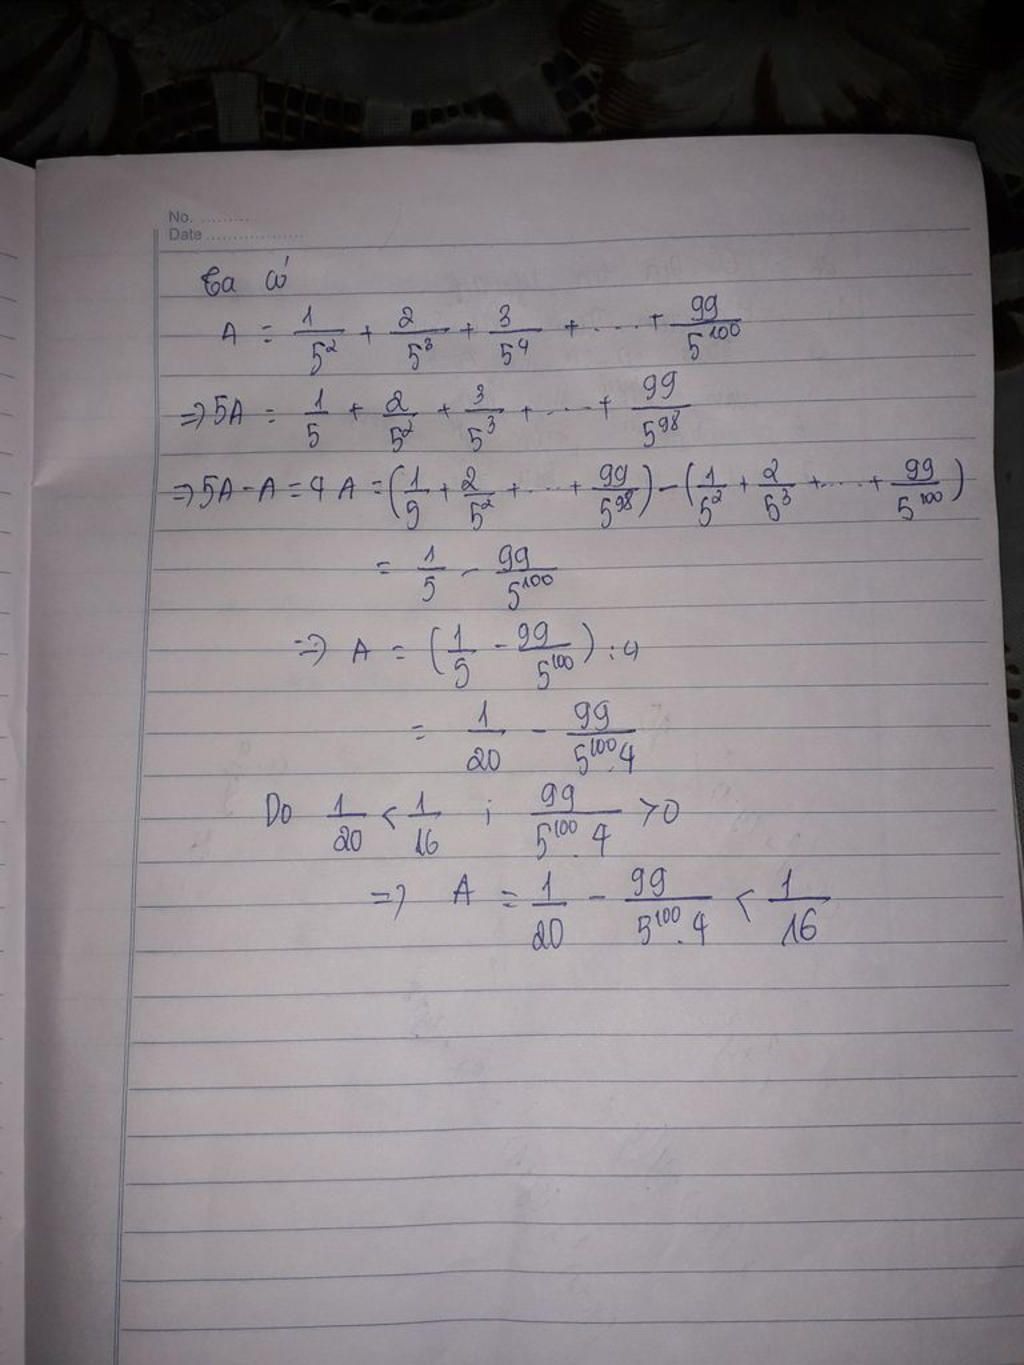 No. .........
Date ..................
Ta có
A = 1/5² + 2/5³ + 3/5⁴ + ... + 99/5¹⁰⁰
=> 5A = 1/5 + 2/5² + 3/5³ + ... + 99/5⁹⁸
=> 5A - A = 4A = (1/9 + 2/5² + ... + 99/5⁹⁸) - (1/5² + 2/5³ + ... + 99/5¹⁰⁰)
= 1/5 - 99/5¹⁰⁰
=> A = (1/5 - 99/5¹⁰⁰) : 4
= 1/20 - 99/5¹⁰⁰.4
Do 1/20 < 1/16 ; 99/5¹⁰⁰.4 > 0
=> A = 1/20 - 99/5¹⁰⁰.4 < 1/16